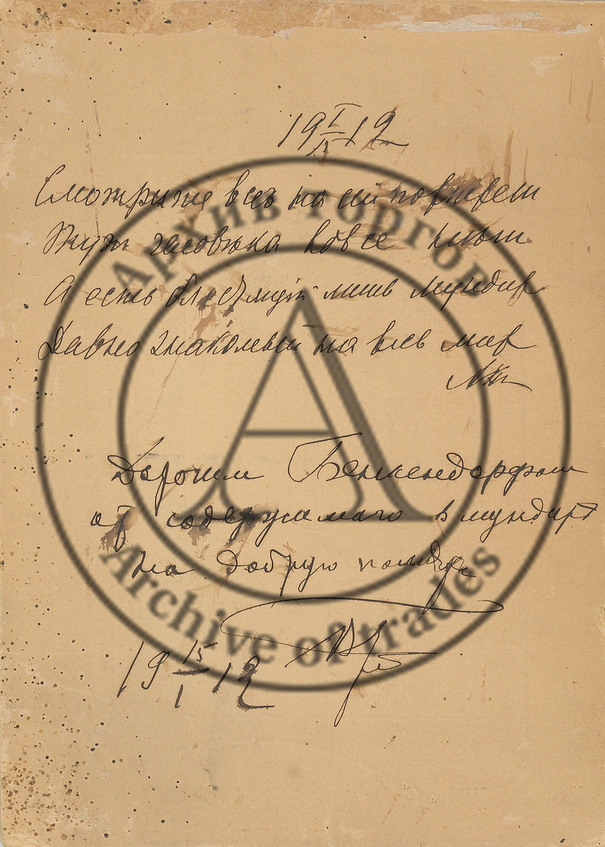 19 I/15 12
Смотрите все на сей портрет
Тут человека вовсе нет
А есть блестящий лишь мундир
Давно знакомый на весь мир
Дорогим Бенкендорфам
от содержимаго в мундире
на добрую память
19 15/1 12
Архив торгов
Archive of trades
А